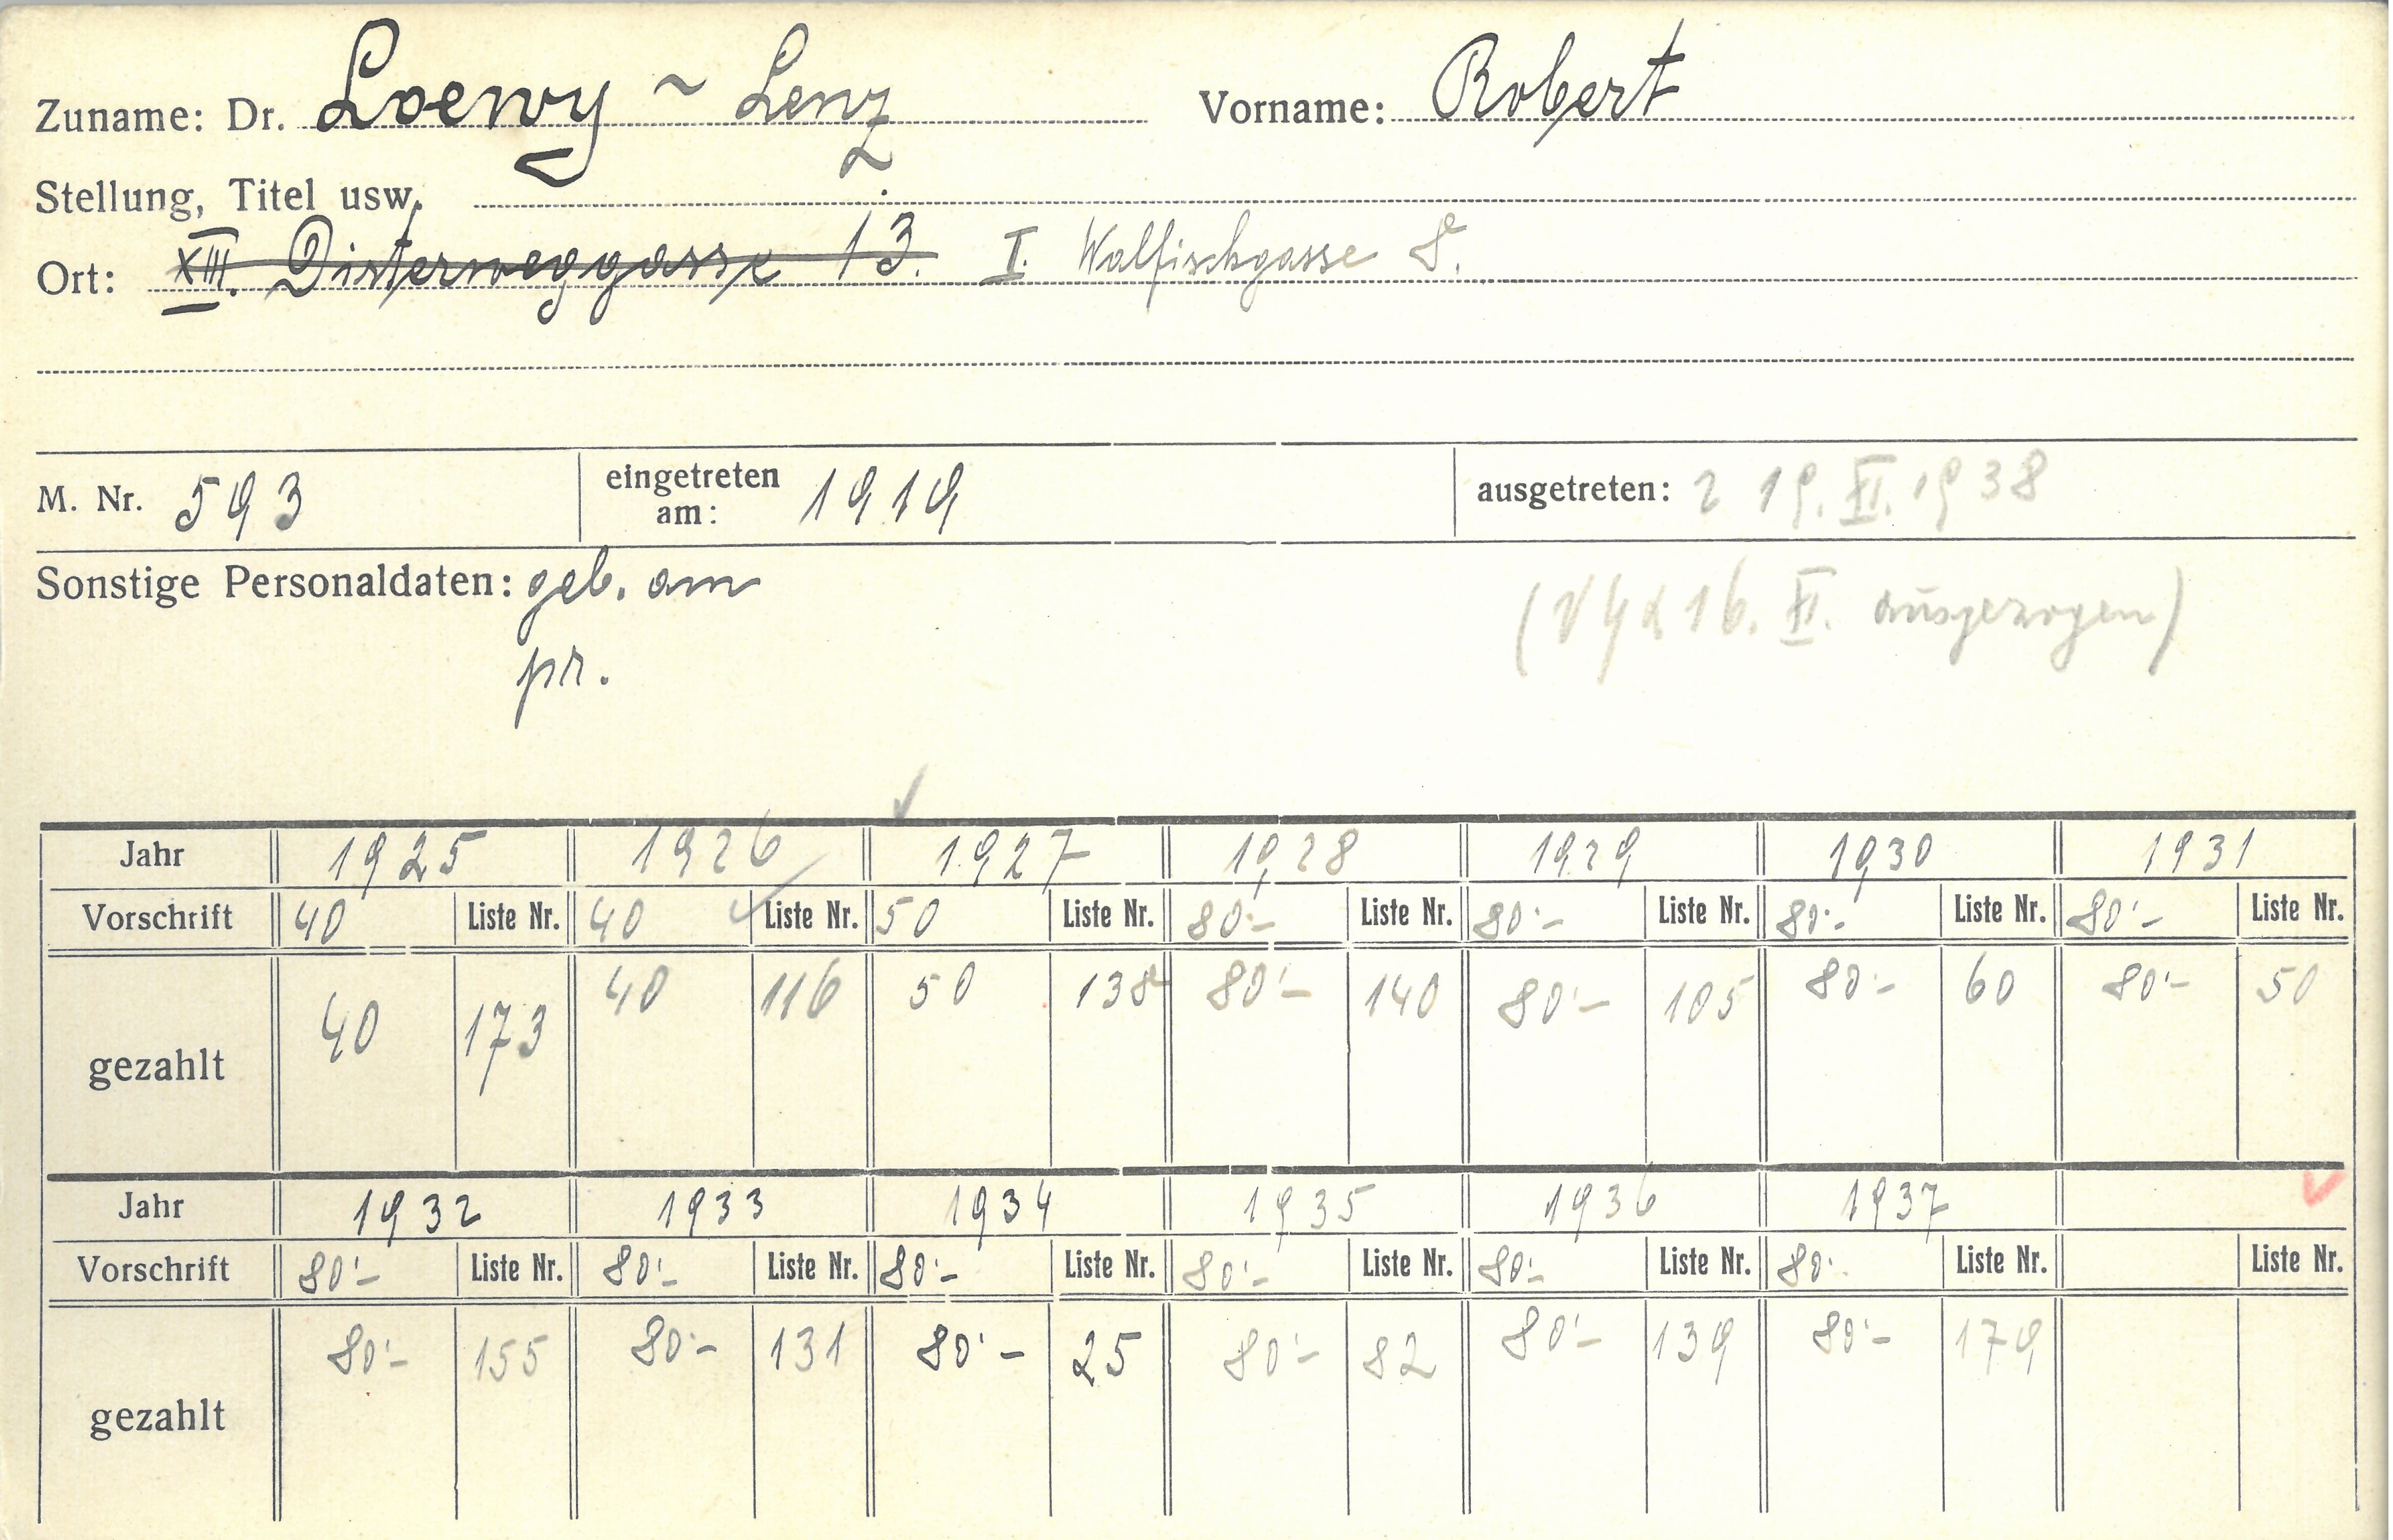 Zuname: Dr. Loewy ~ Lenz Vorname: Robert
Stellung, Titel usw.
Ort: XIII. Disterweggasse 13. I. Walfischgasse 8.
M. Nr. 593 eingetreten am: 1919 ausgetreten: 19. XI. 1938
Sonstige Personaldaten: geb. am
( 16. XI. ausgezogen)
pr.
Jahr 1925 1926 1927 1928 1929 1930 1931
Vorschrift 40 Liste Nr. 40 Liste Nr. 50 Liste Nr. 80·- Liste Nr. 80·- Liste Nr. 80·- Liste Nr. 80·- Liste Nr.
gezahlt 40 173 40 116 50 138 80·- 140 80·- 105 80·- 60 80·- 50
Jahr 1932 1933 1934 1935 1936 1937
Vorschrift 80·- Liste Nr. 80·- Liste Nr. 80·- Liste Nr. 80·- Liste Nr. 80·- Liste Nr. 80· Liste Nr. Liste Nr.
gezahlt 80·- 155 80·- 131 80·- 25 80·- 82 80·- 139 80·- 179